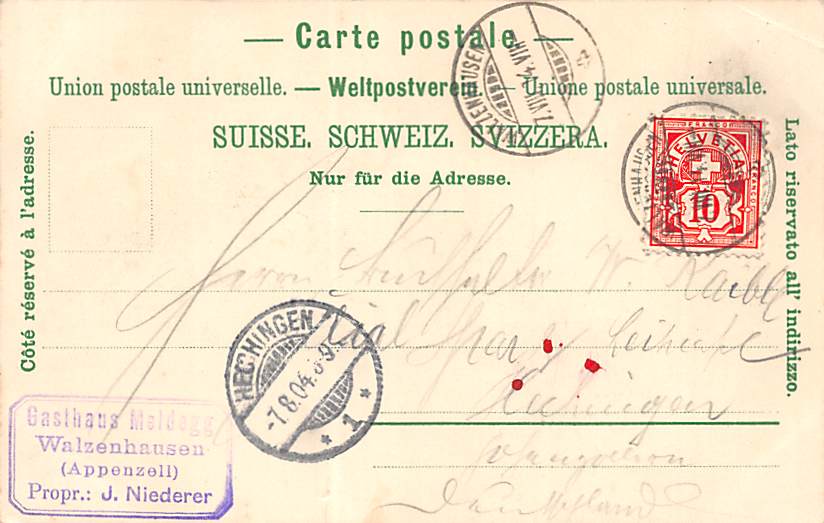 — Carte postale —
Union postale universelle. — Weltpostverein. — Unione postale universale.
SUISSE. SCHWEIZ. SVIZZERA.
Nur für die Adresse.
Côté réservé à l'adresse.
Lato riservato all' indirizzo.
WALZENHAUSEN
FRANCO
HELVETIA
FRANCO
10
Herrn Buchhalter W.
Hechingen
Hohenzollern
Deutschland
HECHINGEN
-7.8.04.
* 1 *
Gasthaus Meldegg
Walzenhausen
(Appenzell)
Propr.: J. Niederer